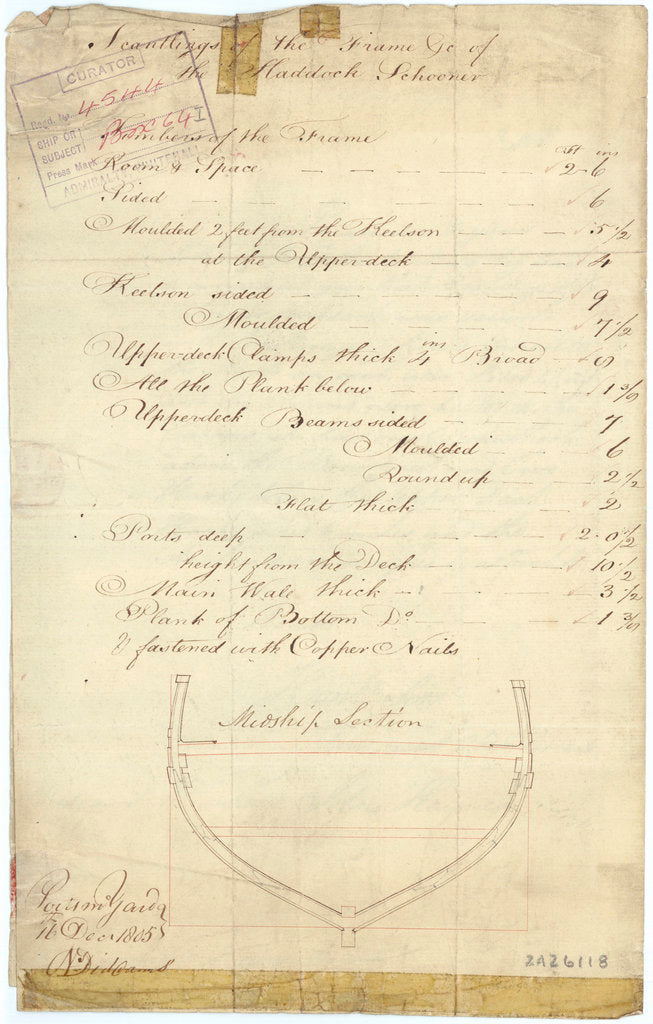 Scantlings of the Frame &c of
the Haddock Schooner
CURATOR
Regd. No. 4544
SHIP OR SUBJECT
Press Mark 64 I
ADMIRALTY WHITEHALL
Timbers of the Frame
ft ins
Room & Space — — — — — 2 - 6
Sided — — — — — — 6
Moulded 2 feet from the Keelson — — — 5 1/2
at the Upper-deck — — — 4
Keelson sided — — — — — 9
Moulded — — — — 7 1/2
Upper-deck Clamps thick 4 ins Broad — 8
All the Plank below — — — — 1 3/8
Upper-deck Beams sided — — — 7
Moulded — — 6
Round up — — 2 1/2
Flat thick — — — 2
Ports deep — — — — — 2 - 0 1/2
height from the Deck — — — 10 1/2
Main Wale thick — — — — 3 1/2
Plank of Bottom Do. — — — — 1 3/8
& fastened with Copper Nails
Midship Section
Portsmo Yard
16 Decr 1805
N Didhams
ZAZ6118